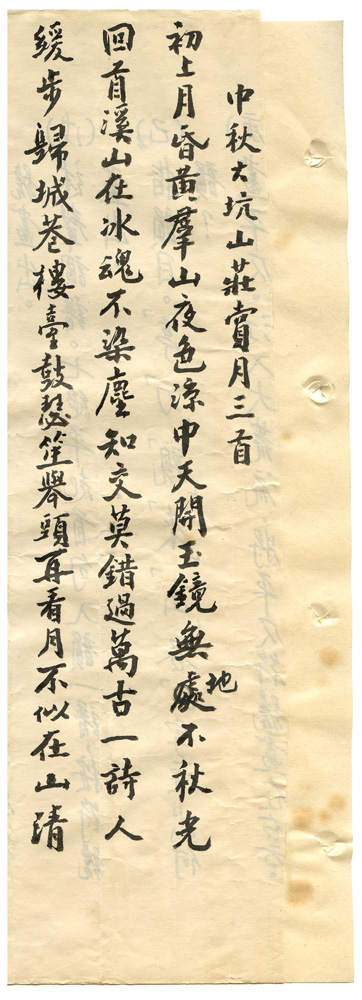 中秋大坑山莊賞月三首
初上月昏黃羣山夜色涼中天開玉鏡無處地不秋光
回首溪山在冰魂不染塵知交莫錯過萬古一詩人
緩步歸城巷樓臺鼓瑟笙舉頭再看月不似在山清